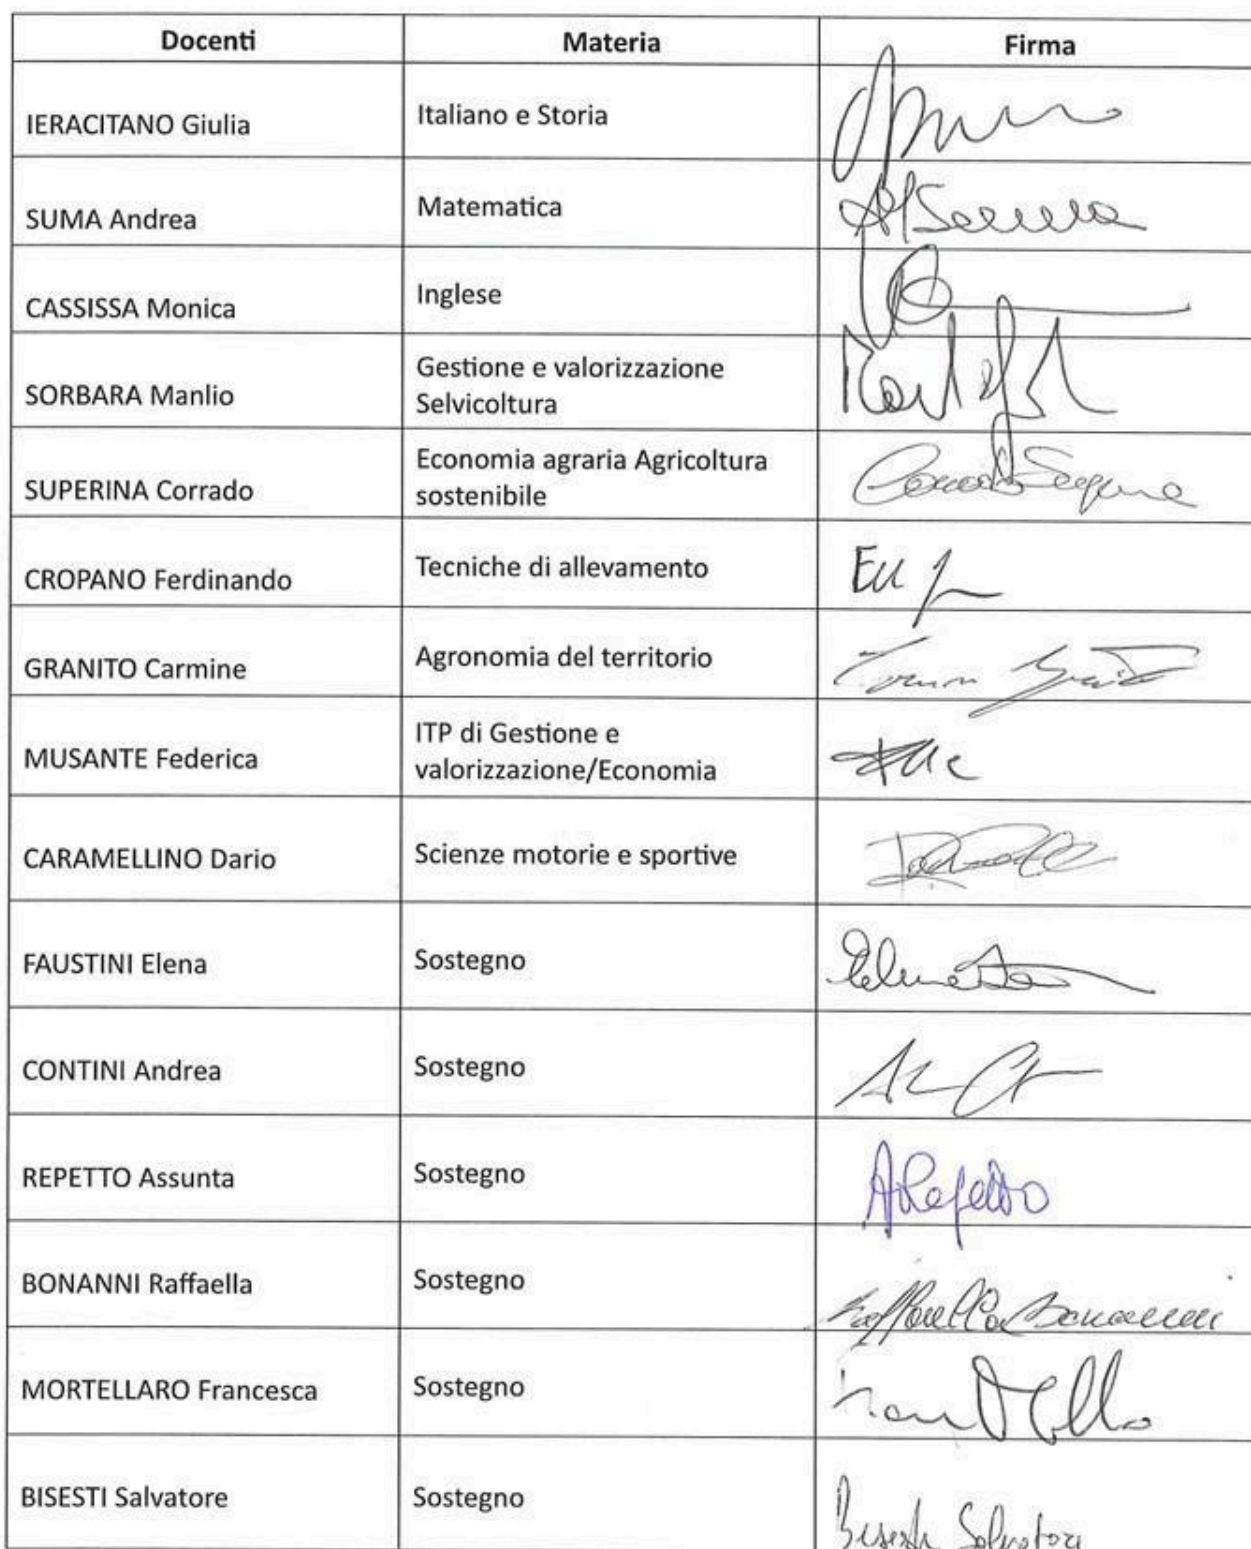 Docenti Materia Firma
IERACITANO Giulia Italiano e Storia
SUMA Andrea Matematica
CASSISSA Monica Inglese
SORBARA Manlio Gestione e valorizzazione
Selvicoltura
SUPERINA Corrado Economia agraria Agricoltura
sostenibile
CROPANO Ferdinando Tecniche di allevamento
GRANITO Carmine Agronomia del territorio
MUSANTE Federica ITP di Gestione e
valorizzazione/Economia
CARAMELLINO Dario Scienze motorie e sportive
FAUSTINI Elena Sostegno
CONTINI Andrea Sostegno
REPETTO Assunta Sostegno ARepetto
BONANNI Raffaella Sostegno Raffaella Bonanni
MORTELLARO Francesca Sostegno
BISESTI Salvatore Sostegno Bisesti Salvatore